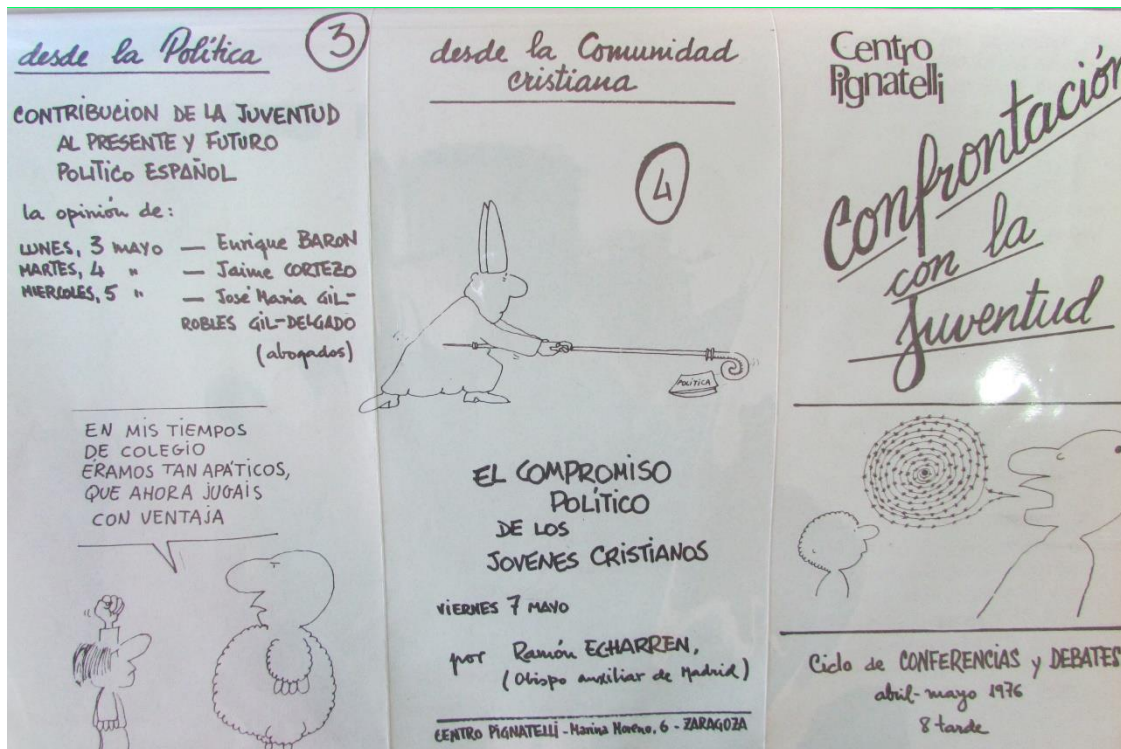 desde la Política
3
CONTRIBUCION DE LA JUVENTUD
AL PRESENTE Y FUTURO
POLITICO ESPAÑOL
la opinión de:
LUNES, 3 MAYO — Enrique BARON
MARTES, 4 " — Jaime CORTEZO
MIERCOLES, 5 " — José Maria GIL-
ROBLES GIL-DELGADO
(abogados)
EN MIS TIEMPOS
DE COLEGIO
ERAMOS TAN APÁTICOS,
QUE AHORA JUGAIS
CON VENTAJA
desde la Comunidad
cristiana
4
POLITICA
EL COMPROMISO
POLÍTICO
DE LOS
JOVENES CRISTIANOS
VIERNES 7 MAYO
por Ramón ECHARREN,
(Obispo auxiliar de Madrid)
CENTRO PIGNATELLI - Marina Moreno, 6 - ZARAGOZA
Centro
Pignatelli
Confrontación
con la
juventud
Ciclo de CONFERENCIAS y DEBATES
abril-mayo 1976
8 tarde